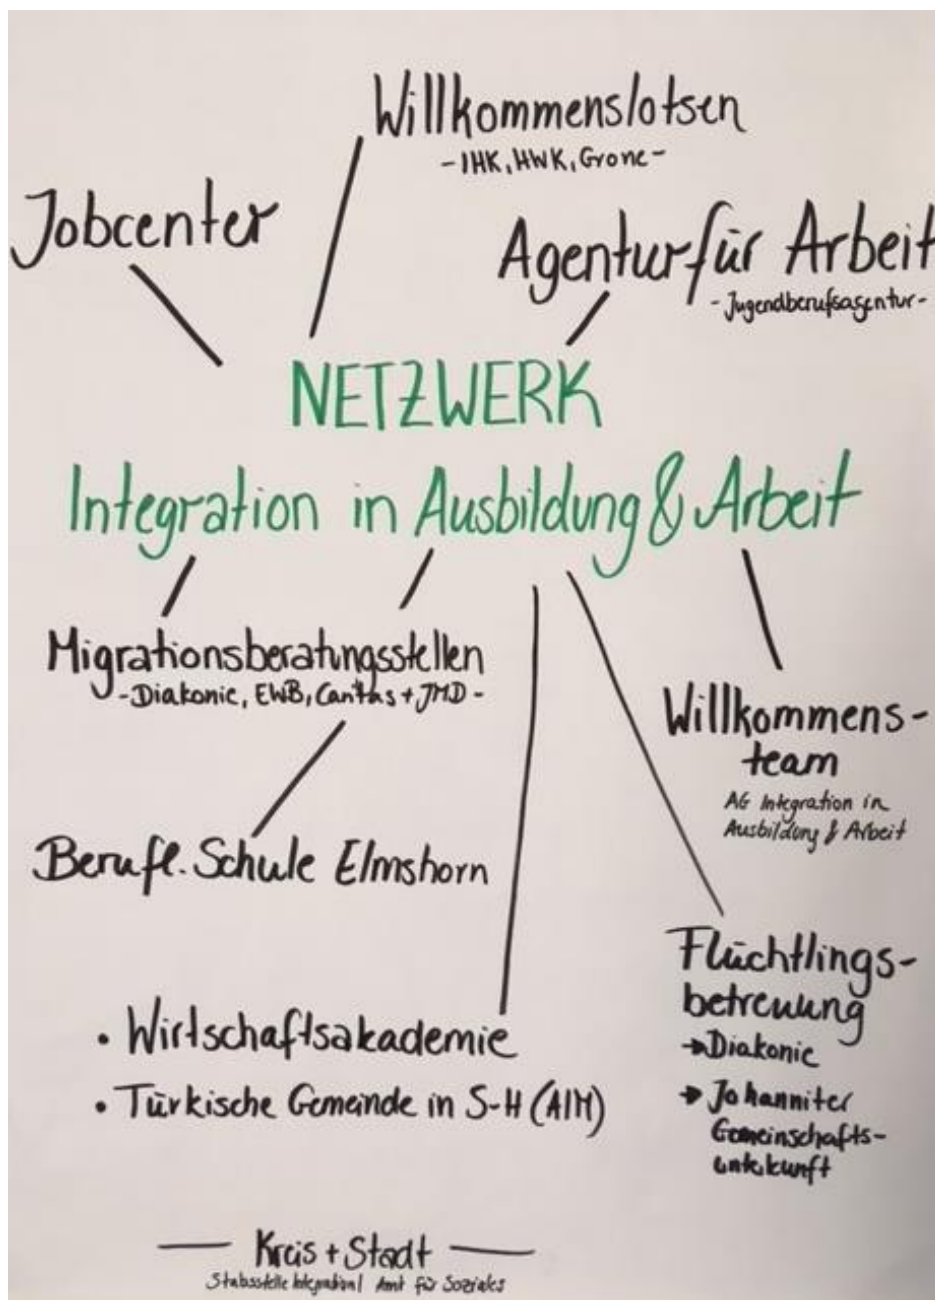 Willkommenslotsen
-IHK, HWK, Grone-
Jobcenter
Agentur für Arbeit
-Jugendberufsagentur-
NETZWERK
Integration in Ausbildung & Arbeit
Migrationsberatungsstellen
-Diakonie, EWB, Caritas + JMD-
Willkommens-
team
AG Integration in
Ausbildung & Arbeit
Berufl. Schule Elmshorn
Flüchtlings-
betreuung
→ Diakonie
→ Johanniter
Gemeinschafts-
unterkunft
• Wirtschaftsakademie
• Türkische Gemeinde in S-H (AIM)
— Kreis + Stadt —
Stabsstelle Integration | Amt für Soziales